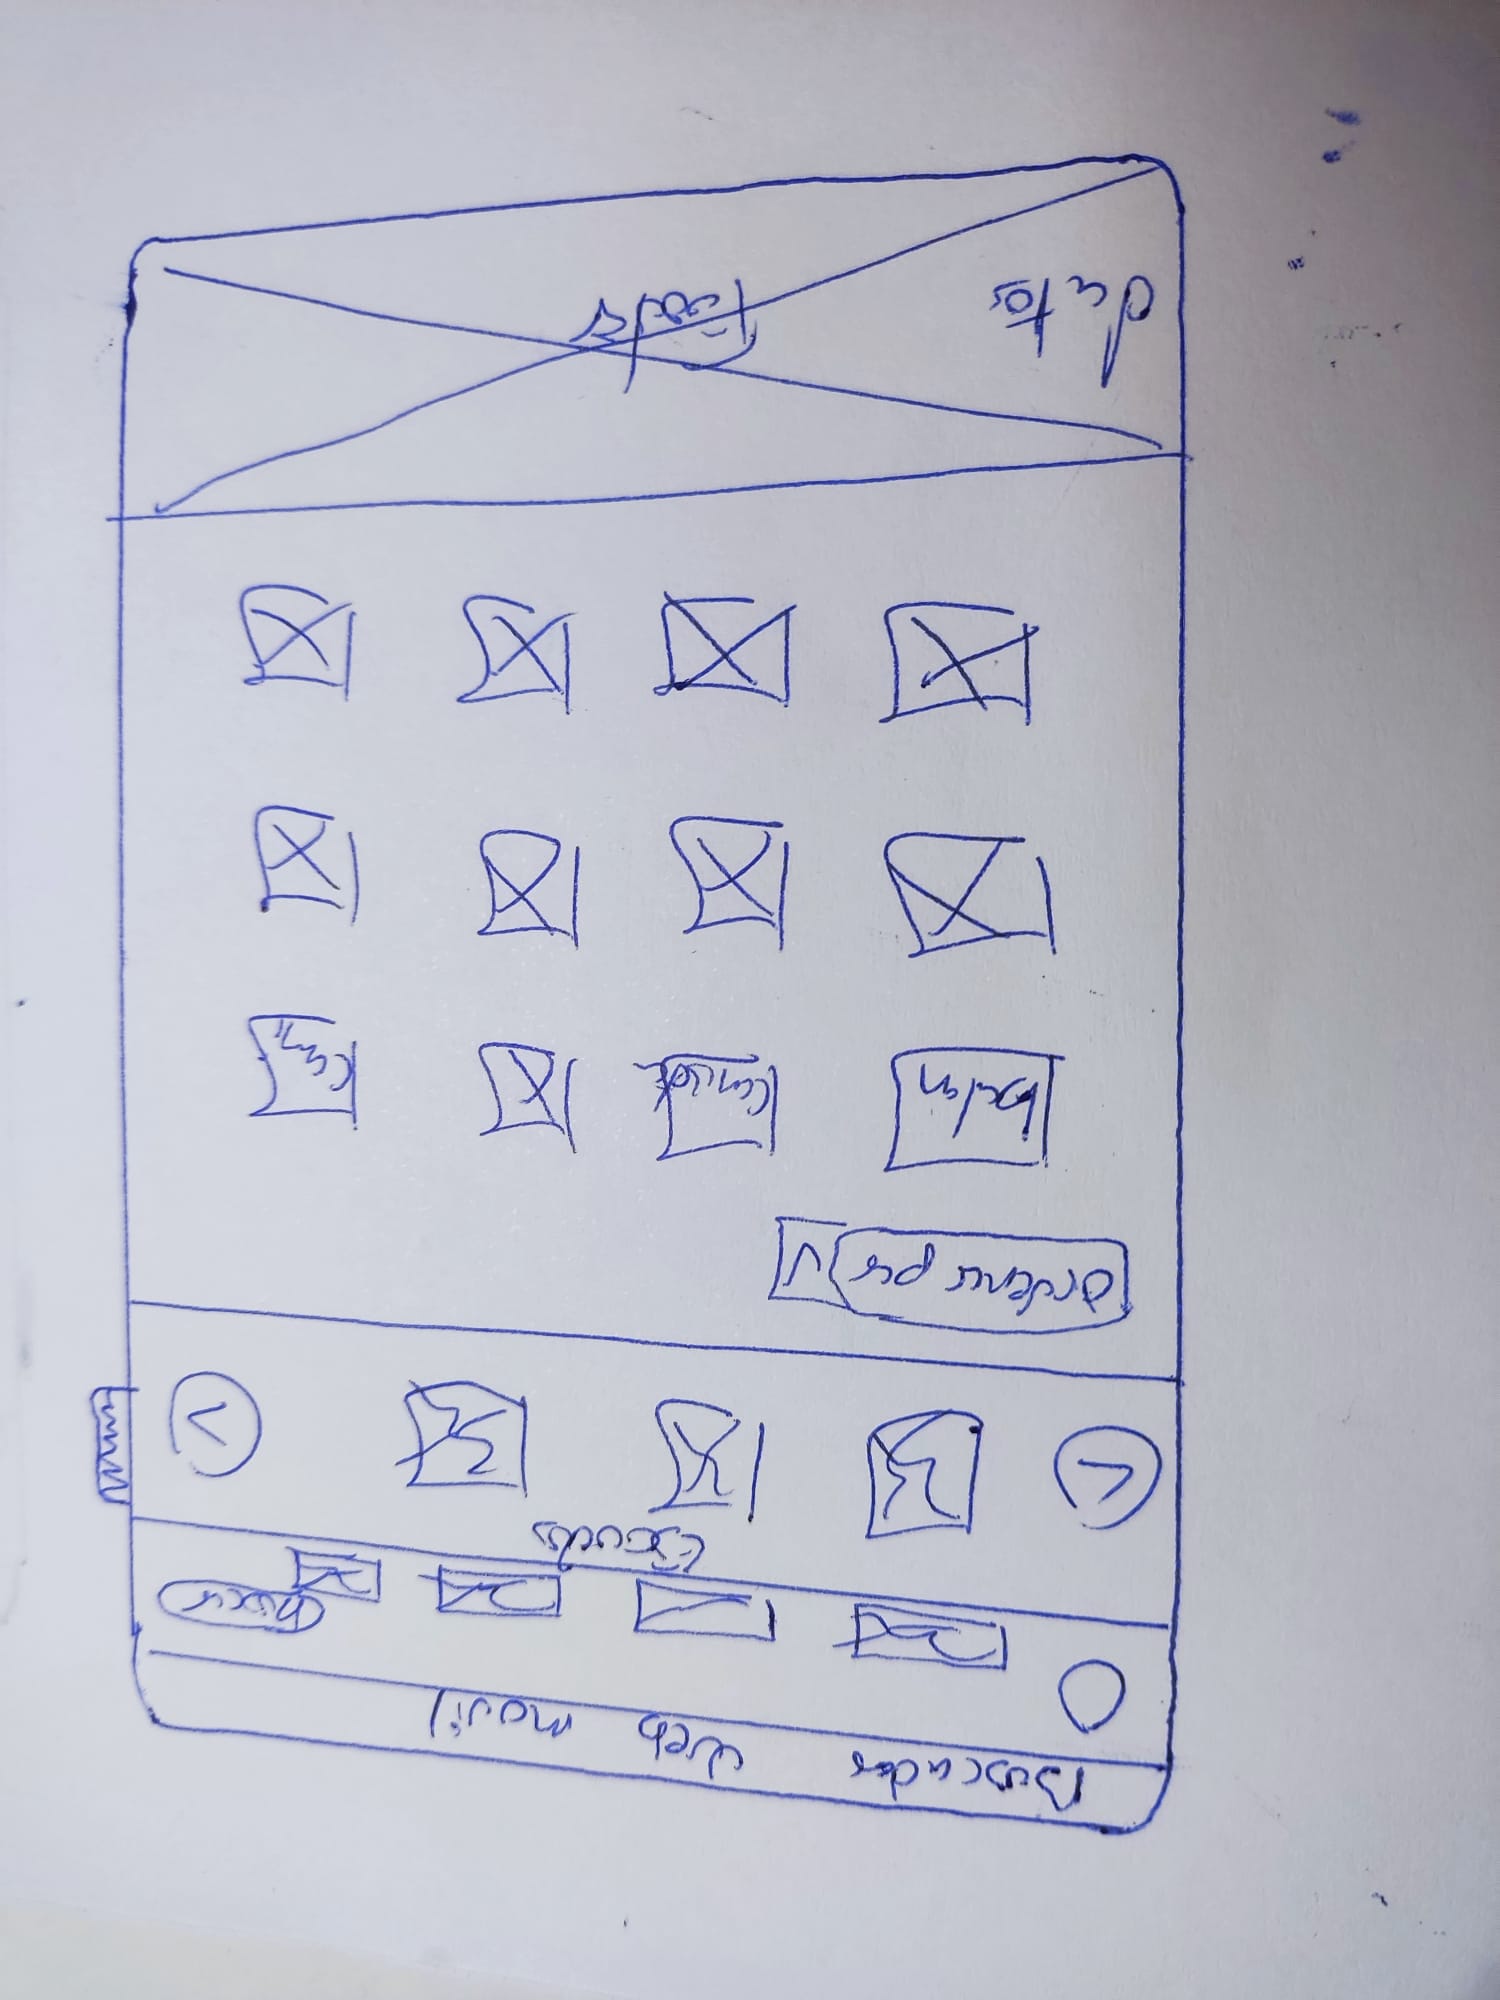 Buscador web movil
buscar
Escudos
Ordenar por
balon
camiseta
cami
datos
Footer